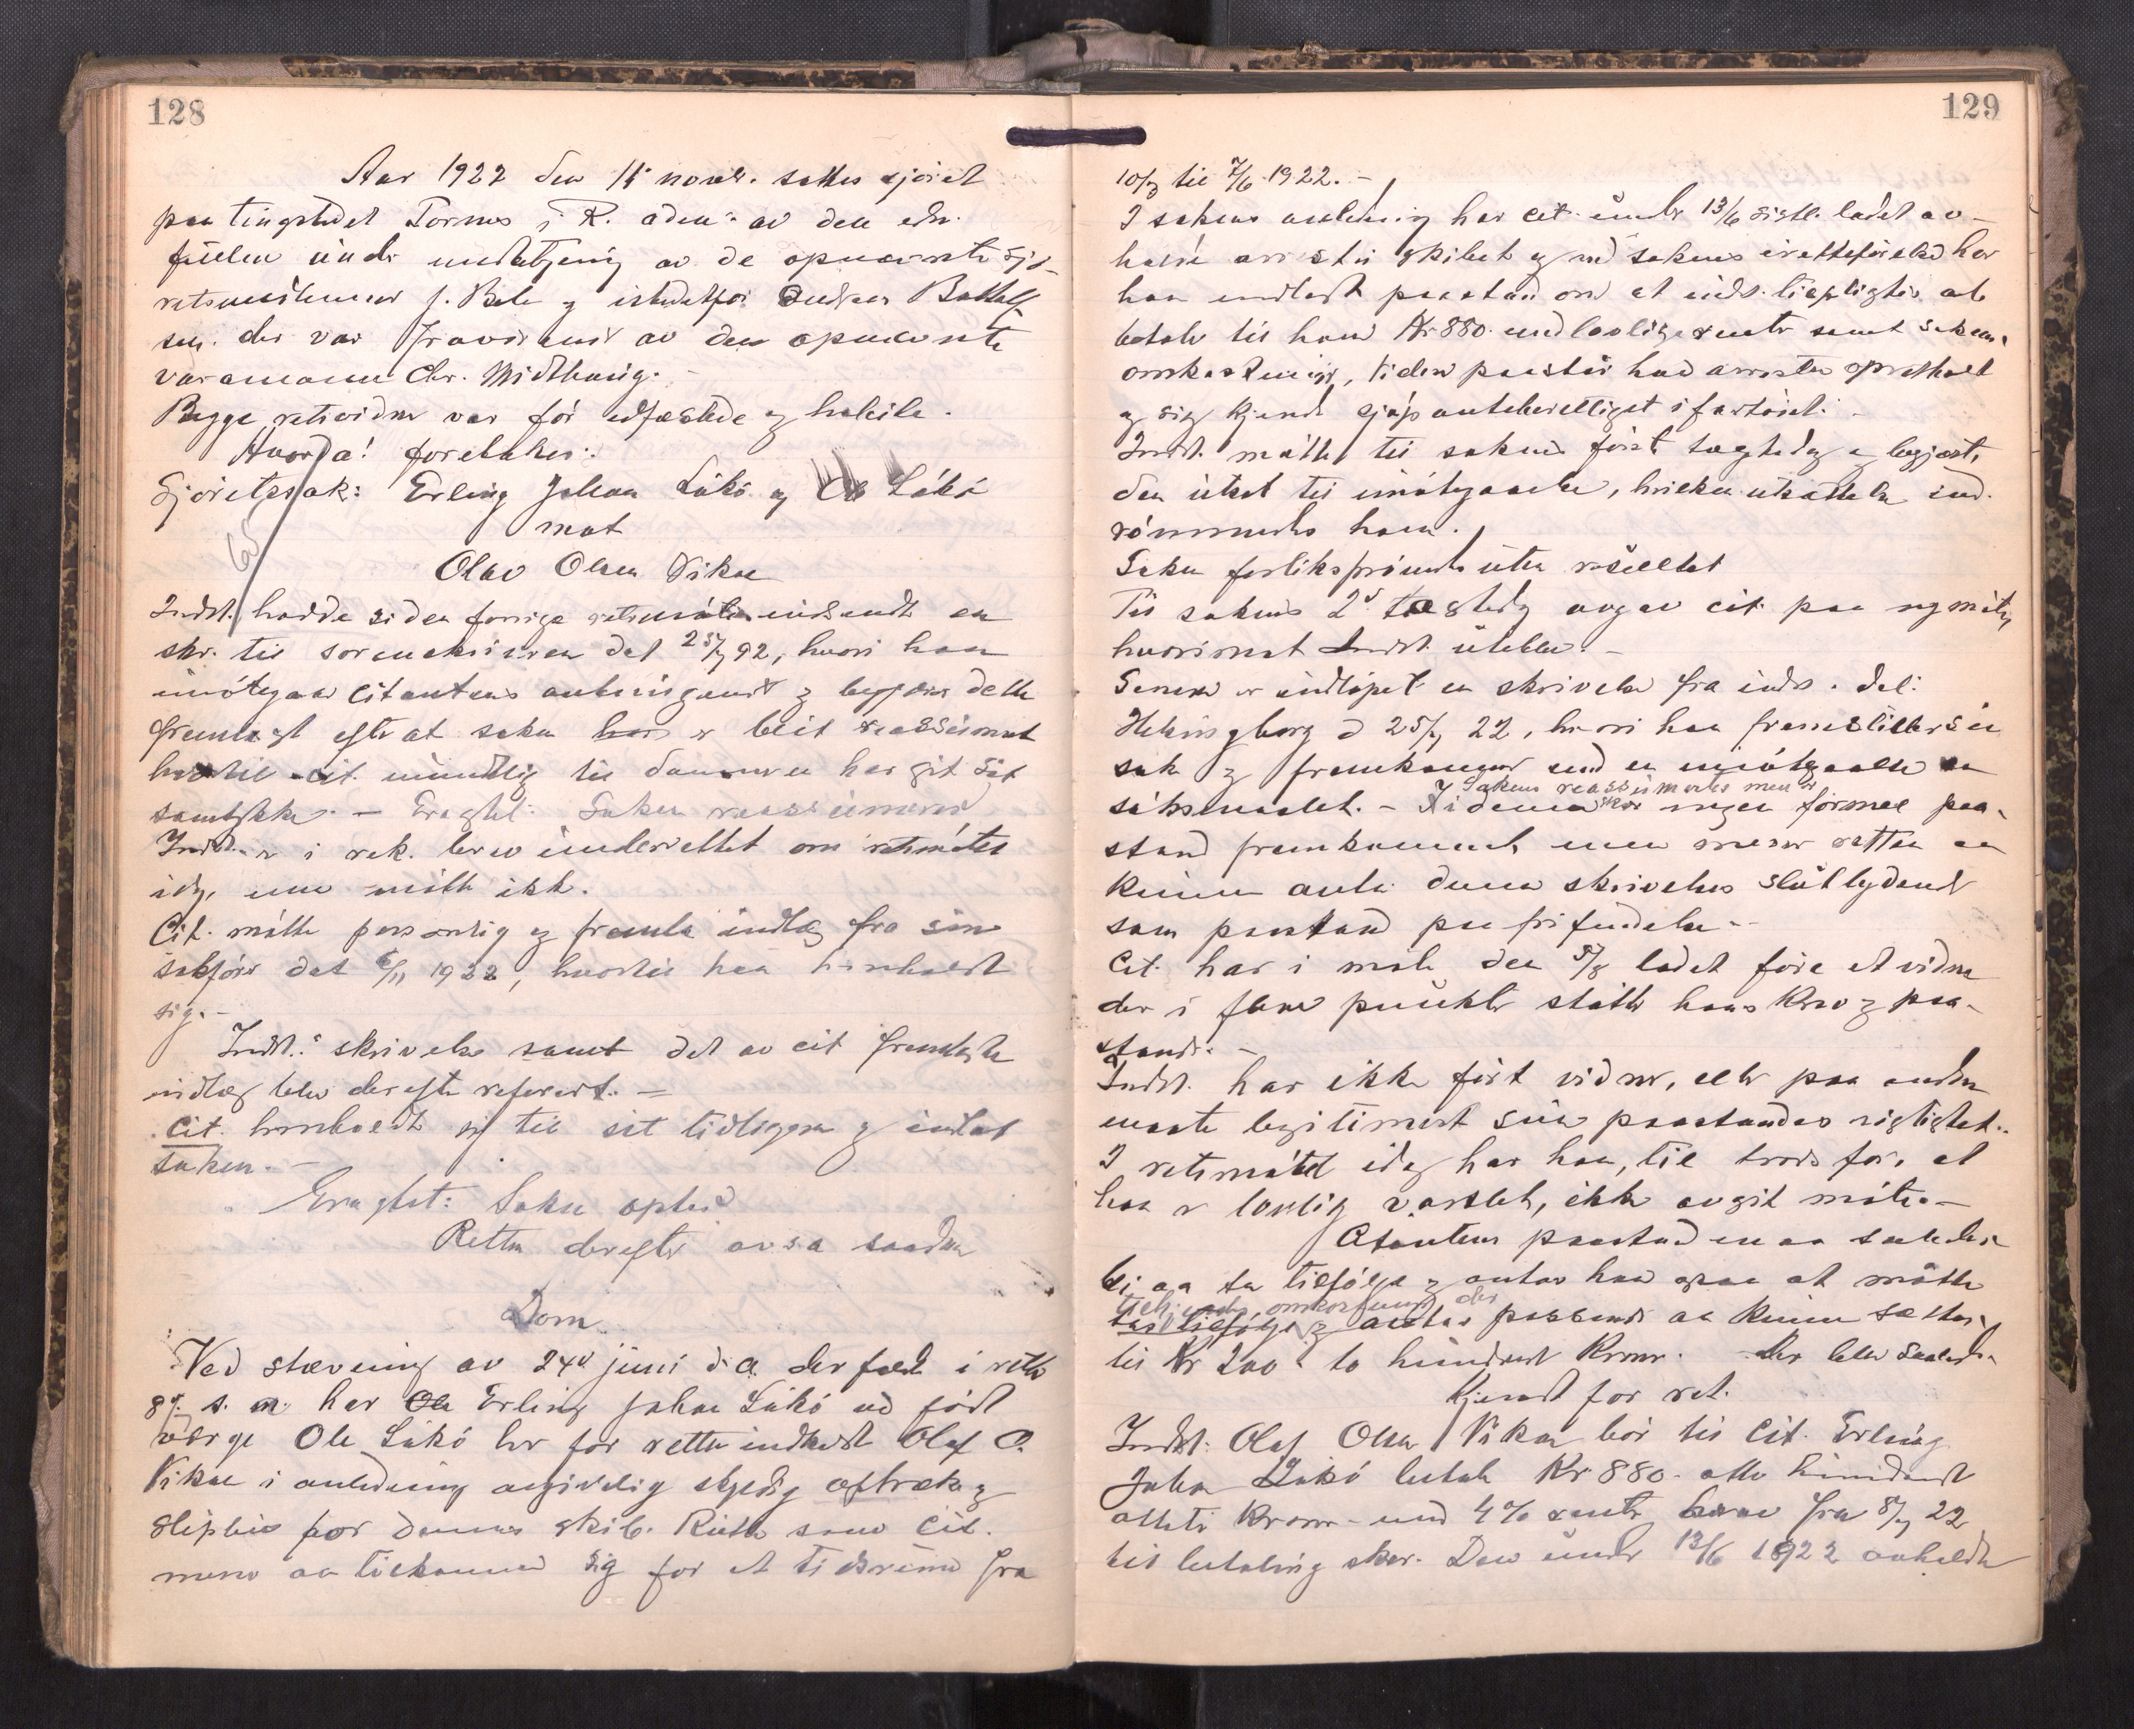 128
Aar 1922 den 14 novbr. sattes sjöret
paa tingstedet Tornes i R. aden av den edsv.
fuldm. under medbetjening av de opnævnte sjö-
retsmedlemmer J. Bele og istedetfor Andreas Bottolf-
sen. der var fraværende av den opnævnte
varamann Chr. Midthaug. -
Begge retsvidner var før edfæstede og habile.
Hvorda! foretokes:
Sjöretssak: Erling Johan Lökö og Ole Lökö
mot
Olav Olsen Vikan
Indst. hadde siden forrige retsmöte indsendt en
skr. til sorenskriveren dat 25/7 92, hvori han
imötegaar citantens anbringende og begjærer dette
fremlagt efter at saken har er blit reassumert
hvortil cit. mundtlig til dommeren har git sit
samtykke. - Eragtet: Saken reassumeres
Indst. er i rek. brev underrettet om retsmötet
idag, men mötte ikke.
Cit. mötte personlig og fremla indlæg fra sin
sakförer dat 6/11 1922, hvortil han henholdt
sig. -
Indst.s skrivelse samt det av cit fremlagte
indlæg blev derefter referert. -
Cit. henholdt sig til sit tidligere og indlot
saken. -
Eragtet: Saken optas
Retten derefter avsa saadan
Dom
Ved stævning av 24de juni d. a. der faldt i rette
8/7 s. m. har Ole Erling Johan Lökö ved född
værge Ole Lökö her for retten indkaldt Olaf O.
Vikan i anledning angivelig skyldig aftræk og
slipleie for dennes skib. Ruth som Cit.
mener aa tilkomme sig for et tidsrum fra
129
10/3 til 7/6 1922. -
I sakens anledning har cit. under 13/6 sistl. ladet av-
holde arrest i skibet og ved sakens iretteförelse har
han nedlagt paastand om at indst. tilpligtes at
betale til ham Kr 880. med lovlige renter samt sakens
omkostninger, videre paastaar han arresten opretholdt
og sig kjendt sjöpanteberettiget i fartöiet. -
Indst. mötte til sakens först tægtedag og begjærte
den utsat til imötegaaelse, hvilken utsættelse ind-
römmedes ham.
Saken forliksprövedes uten resultat
Til sakens 2den tægtedag avgav cit. paa ny möte,
hvorimot Indst. uteblev. -
Senere er indlöpet en skrivelse fra indst. dat.
Helsingborg d 25/7 22, hvori han fremstiller sin
sak og fremkommer med en imötegaaelse av
sakens reassumertes men er
söksmaalet. - I denne er ingen formel paa-
stand fremkommet men mener retten aa
kunne anta denne skrivelses slutlydende
som paastand paa frifindelse. -
Cit. har i möte den 5/8 ladet före et vidne
der i flere punkter stötter hans krav og paa-
stand. -
Indst. har ikke fört vidner, eller paa anden
maate legitimert sin paastandes rigtighet.
I retsmötet idag har han, til trods for, at
han er lovlig varslet, ikke avgit möte. -
Citantens paastand maa saaledes
bli aa ta tilfölge og antar han ogsaa at maatte
tilkjendes omkostninger der
tas tilfölge og antas passende aa kunne sættes
til Kr 200 - to hundrede kroner. Der blev saaledes
Kjendt for ret.
Indst. Olaf Olsen Vikan bör til Cit. Erling
Johan Lökö betale Kr 880. otte hundrede
otteti kroner - med 4 % rente herav fra 8/7 22
til betaling sker. Den under 13/6 1922 anholdte